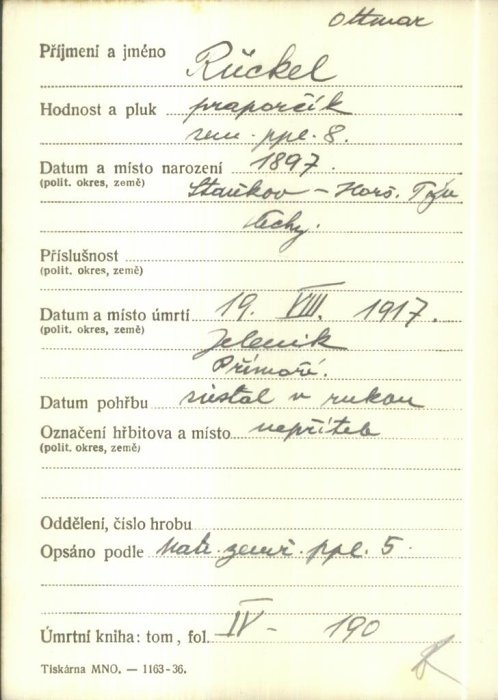 Ottmar
Příjmení a jméno Rückel
Hodnost a pluk praporčík
zem. ppl. 8.
Datum a místo narození 1897.
(polit. okres, země) Staňkov – Horš. Týn
Čechy.
Příslušnost
(polit. okres, země)
Datum a místo úmrtí 19. VIII. 1917.
(polit. okres, země) Jelenik
Přímoří.
Datum pohřbu zůstal v rukou
Označení hřbitova a místo nepřítele
(polit. okres, země)
Oddělení, číslo hrobu
Opsáno podle Matr. zemř. ppl. 5
Úmrtní kniha: tom, fol. IV – 190
Tiskárna MNO. — 1163-36.